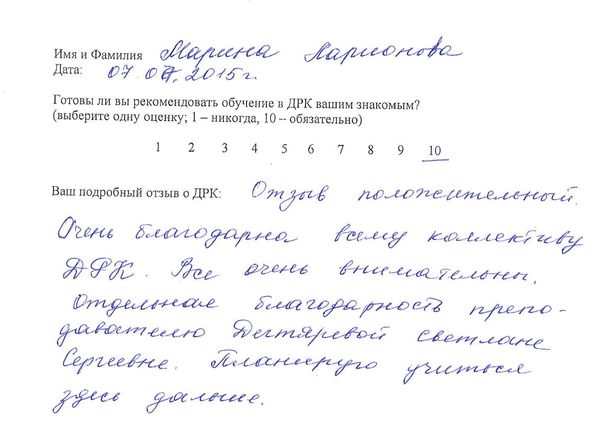 Имя и Фамилия Марина Ларионова
Дата: 07.07.2015г.
Готовы ли вы рекомендовать обучение в ДРК вашим знакомым?
(выберите одну оценку; 1 – никогда, 10 – обязательно)
1 2 3 4 5 6 7 8 9 10
Ваш подробный отзыв о ДРК: Отзыв положительный.
Очень благодарна всему коллективу
ДРК. Все очень внимательны.
Отдельная благодарность препо-
давателю Дегтяревой Светлане
Сергеевне. Планирую учиться
здесь дальше.